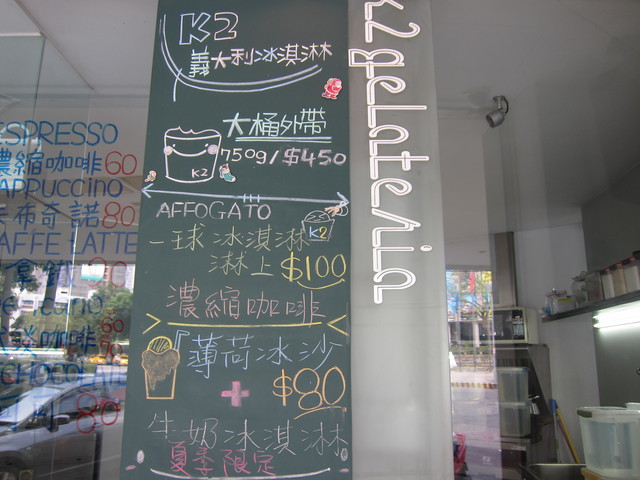 K2
義大利冰淇淋
大桶外帶
K2
750g/$450
AFFOGATO
K2
一球冰淇淋
淋上 $100
濃縮咖啡
『薄荷冰沙
+ $80
牛奶冰淇淋
夏季限定
K2 gelateria
ESPRESSO
濃縮咖啡 60
CAPPUCCINO
卡布奇諾 80
CAFFE LATTE
拿鐵
80